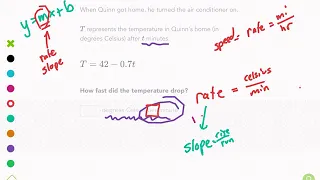 When Quinn got home, he turned the air conditioner on.
y = mx + b
T represents the temperature in Quinn's home (in
degrees Celsius) after t minutes.
speed = rate = mi/hr
rate
slope
T = 42 − 0.7t
How fast did the temperature drop?
rate = celsius/min
degrees Celsius
slope rise/run